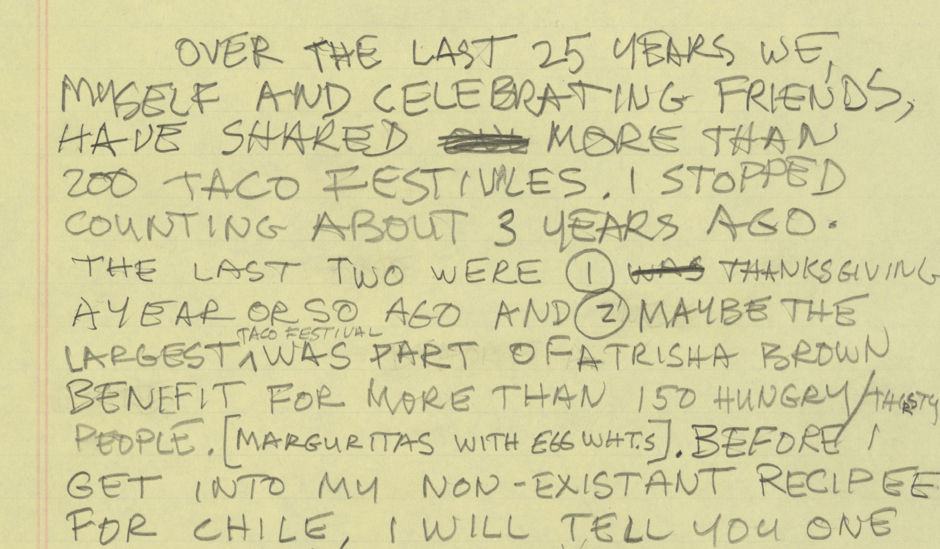 OVER THE LAST 25 YEARS WE,
MYSELF AND CELEBRATING FRIENDS,
HAVE SHARED MORE THAN
200 TACO FESTIVLES. I STOPPED
COUNTING ABOUT 3 YEARS AGO.
THE LAST TWO WERE 1 WAS THANKSGIVING
A YEAR OR SO AGO AND 2 MAYBE THE
TACO FESTIVAL
LARGEST ^ WAS PART OF A TRISHA BROWN
BENEFIT FOR MORE THAN 150 HUNGRY/THIRSTY
PEOPLE. [MARGURITAS WITH EGG WHT.S]. BEFORE I
GET INTO MY NON-EXISTANT RECIPEE
FOR CHILE, I WILL TELL YOU ONE